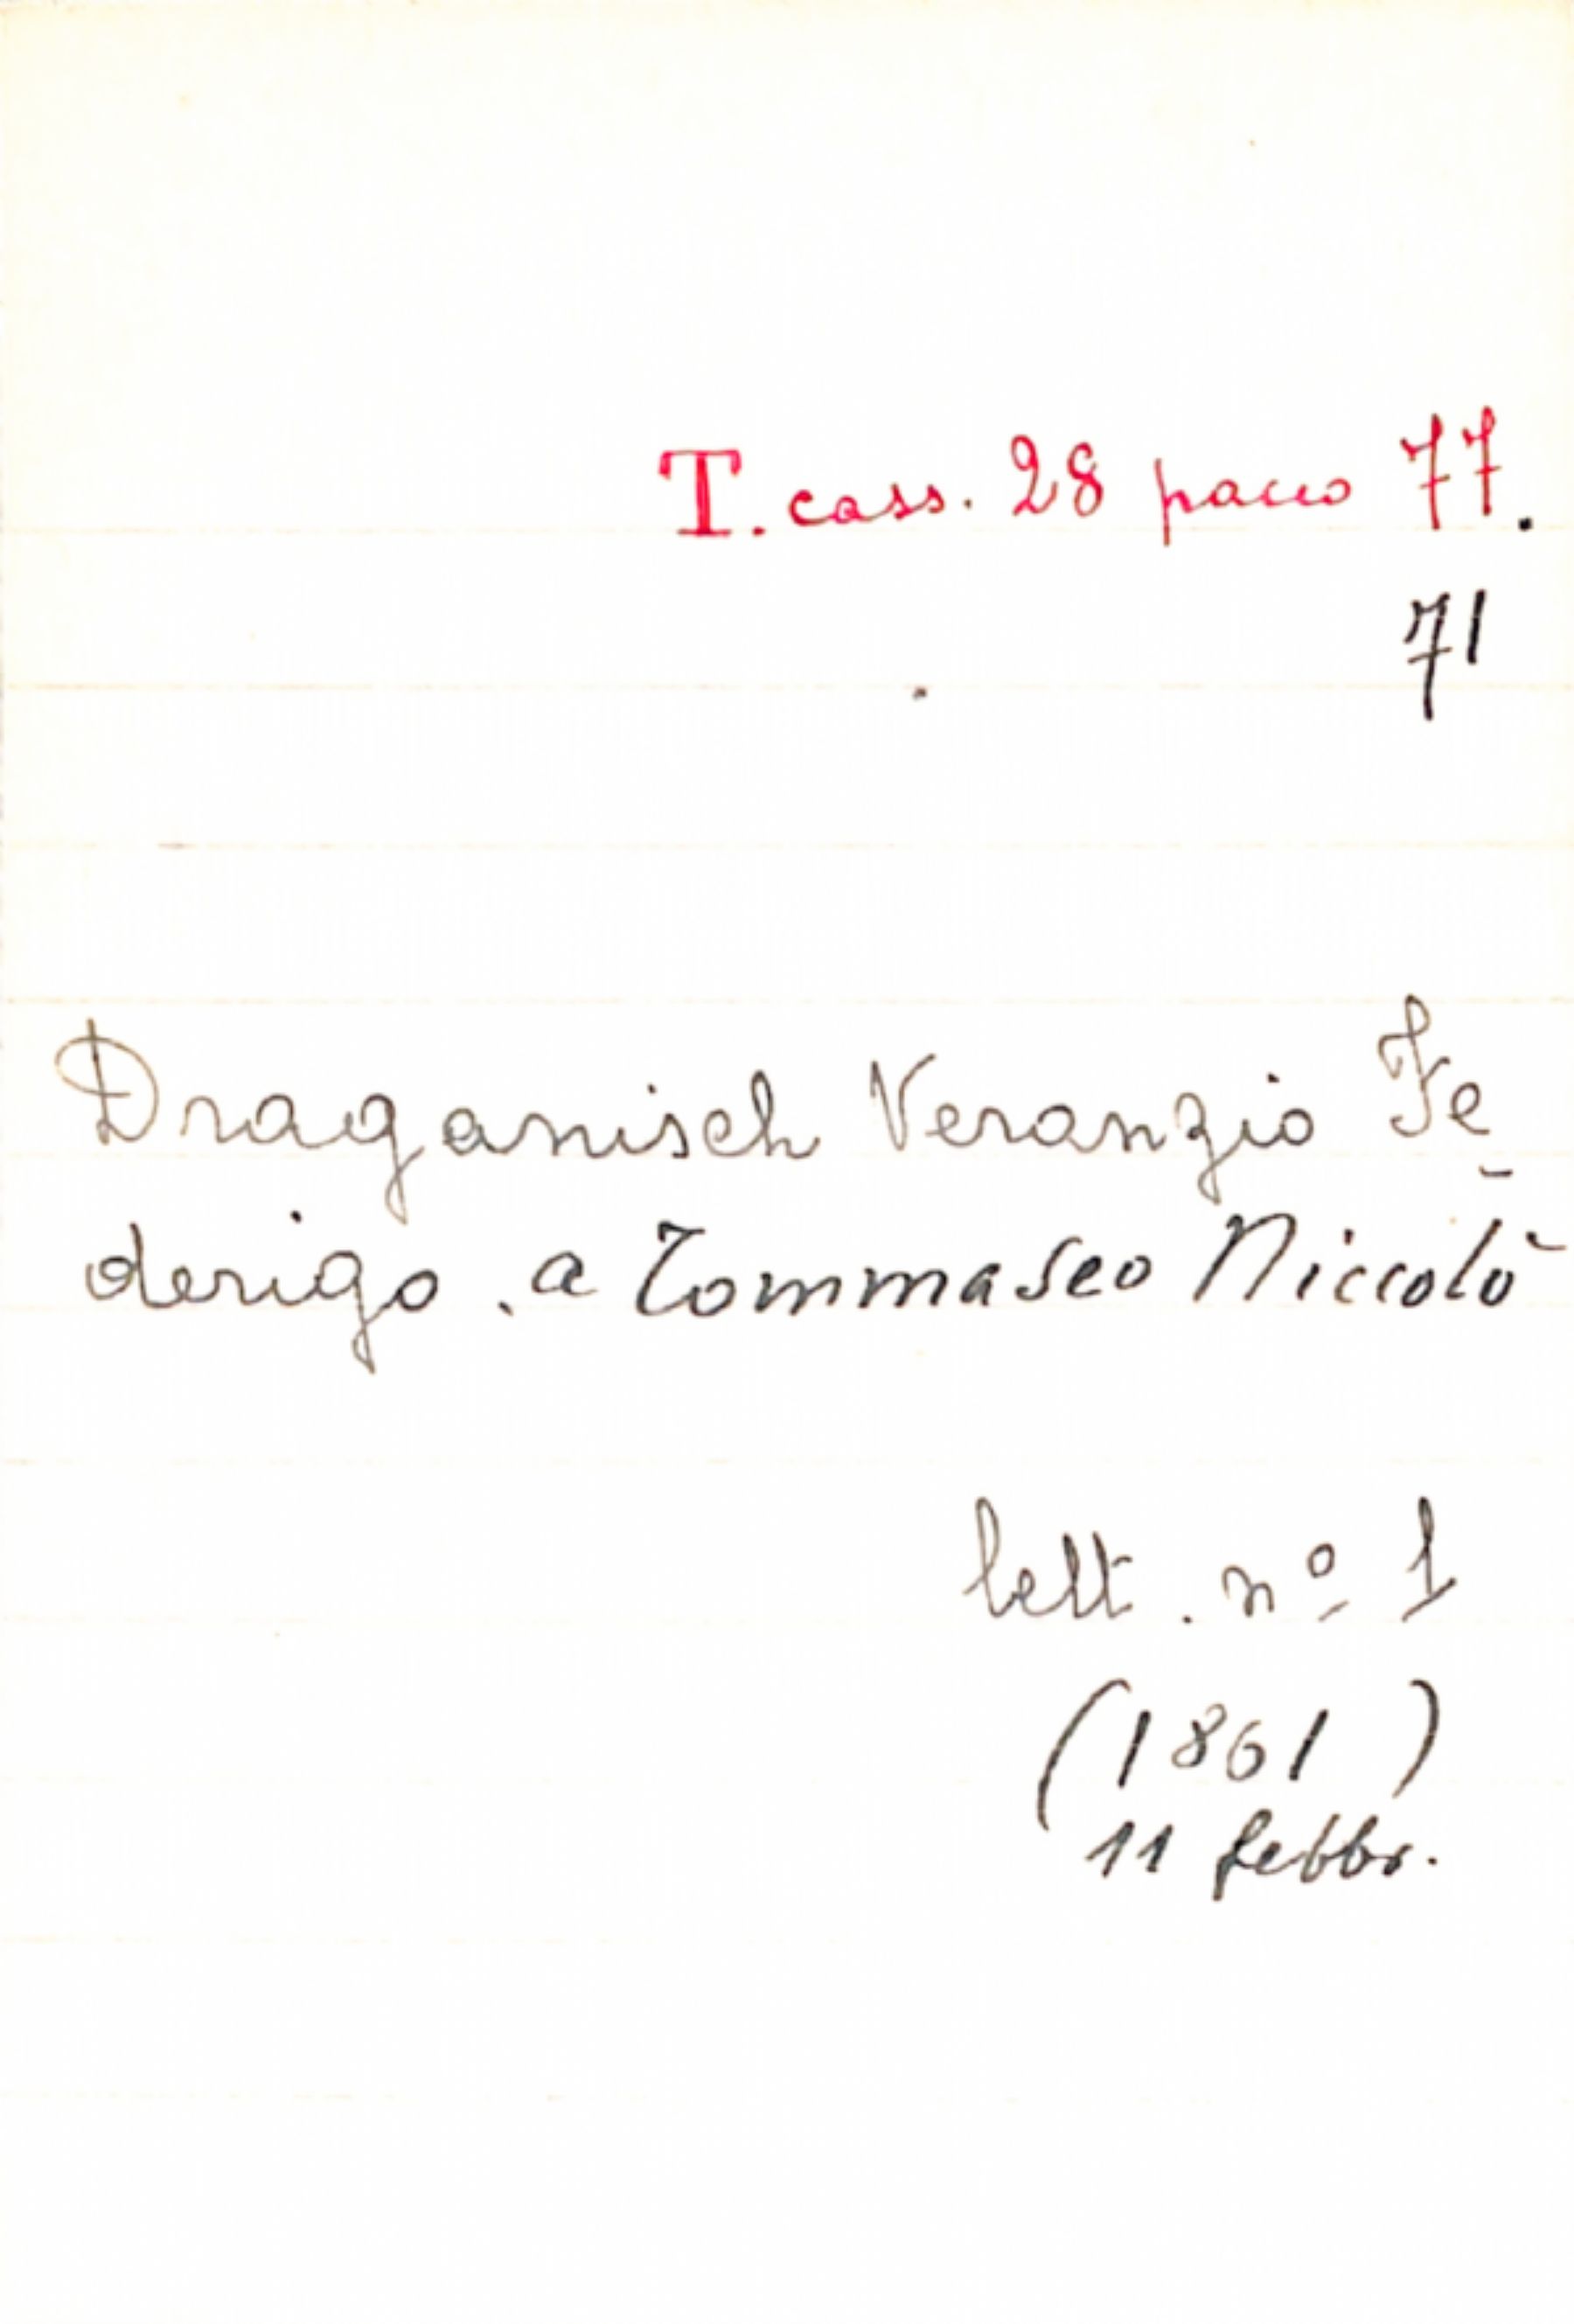 T. cass. 28 pacco 77.
71
Draganisch Veranzio Fe-
derigo . a Tommaseo Niccolò
lett. nº 1
(1861)
11 febbr.